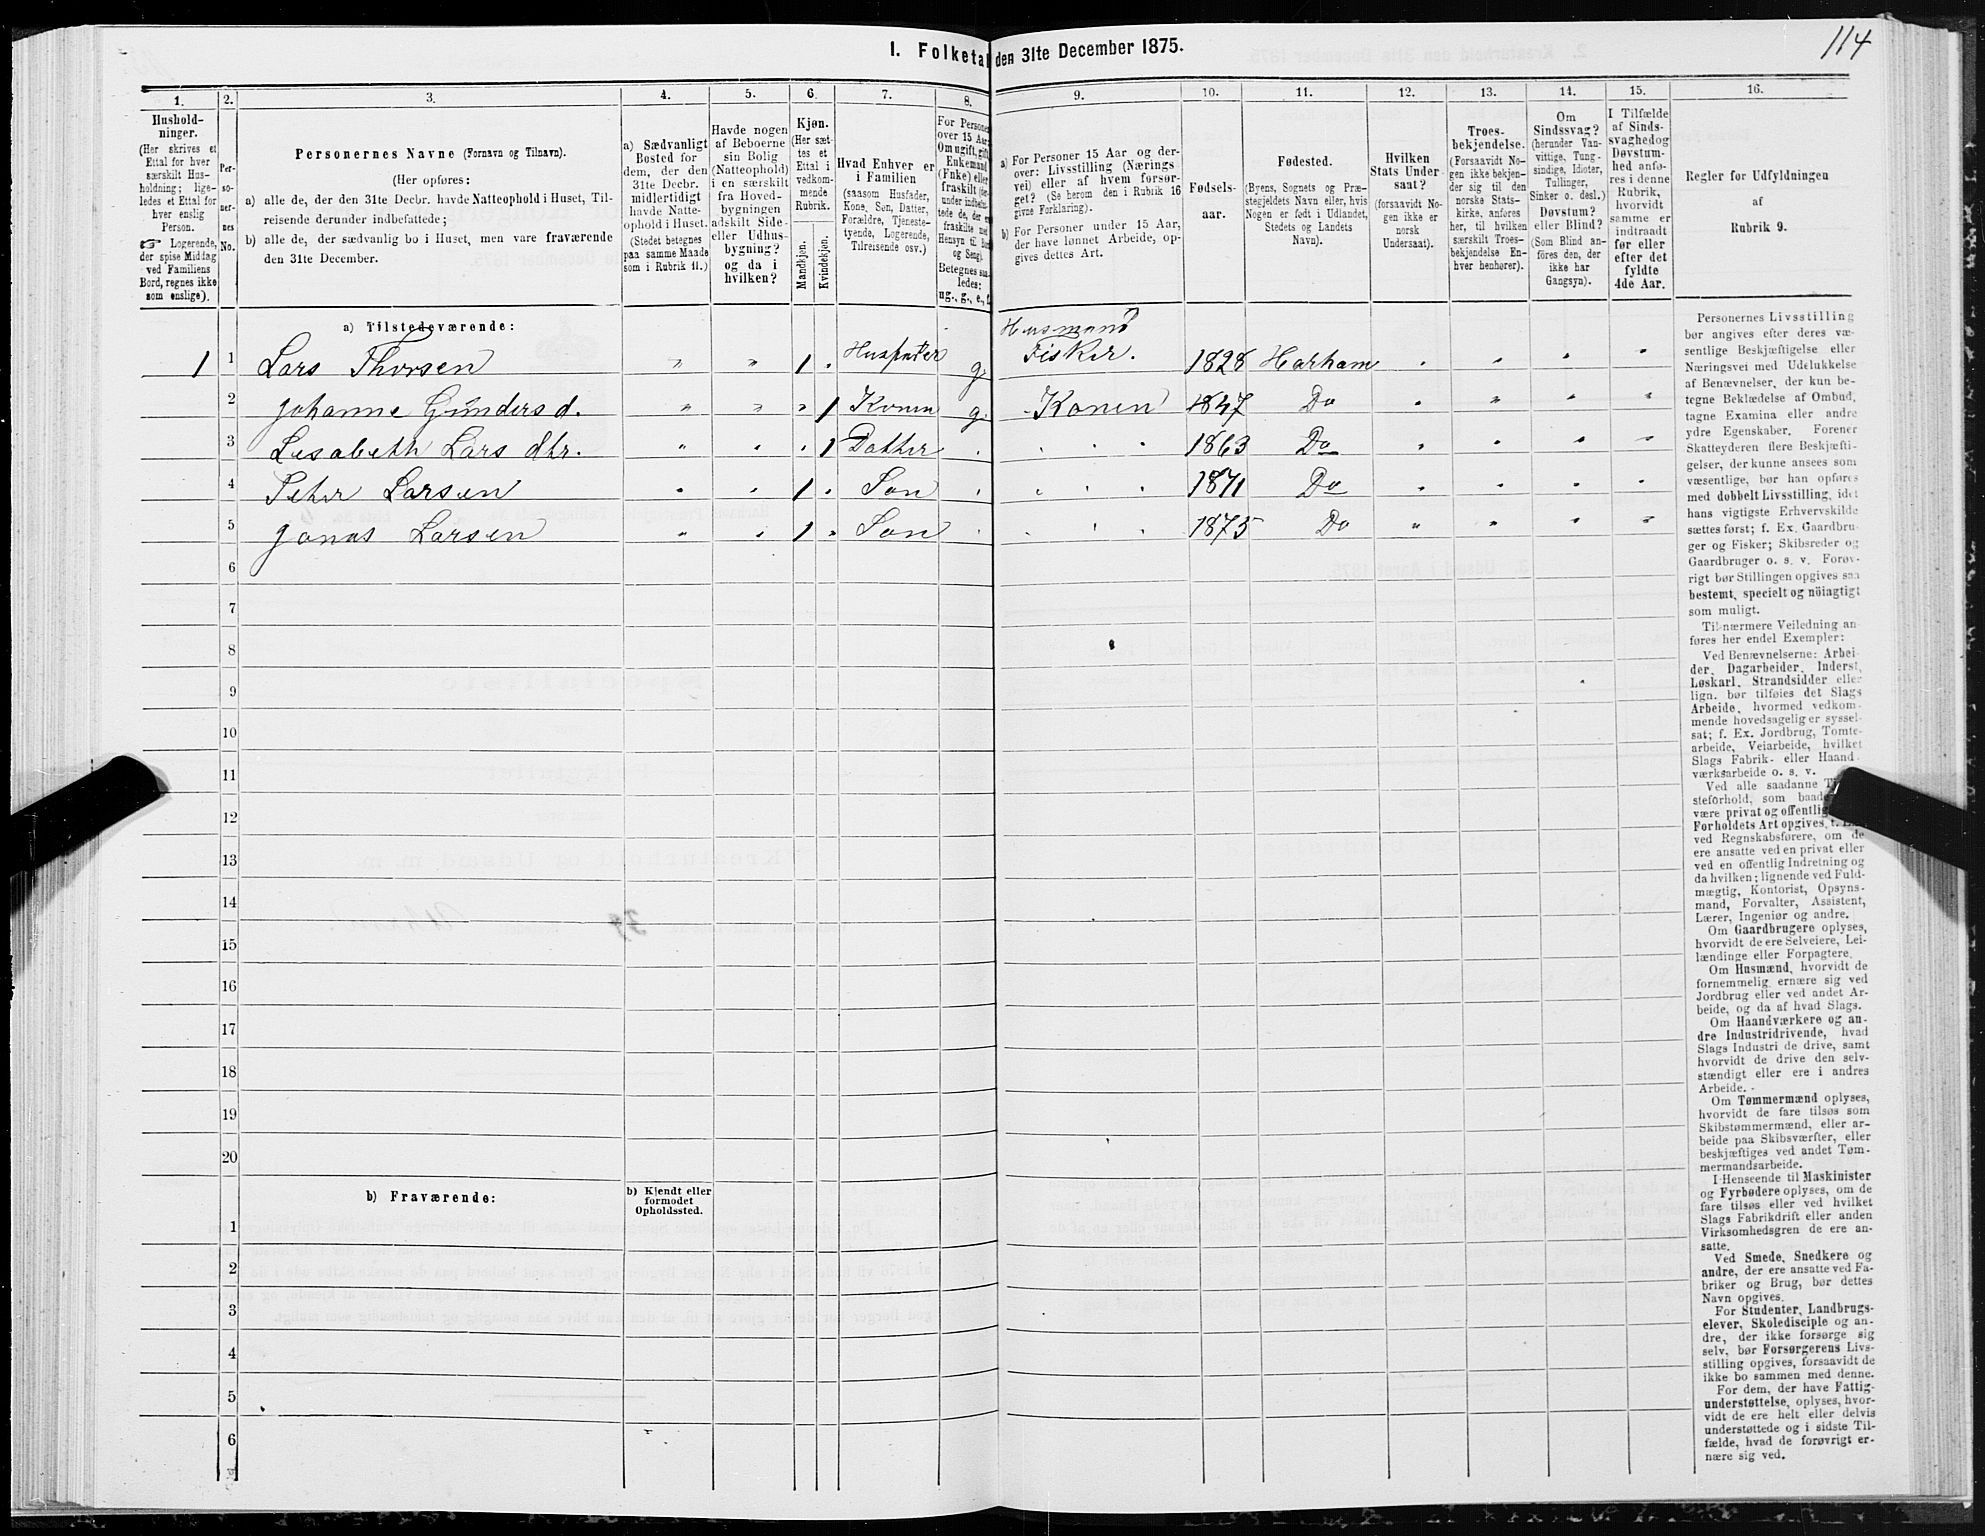 114
I. Folketal den 31te December 1875.
1. 2. 3. 4. 5. 6. 7. 8. 9. 10. 11. 12. 13. 14. 15. 16.
Hushold-
ninger.
(Her skrives et
Ettal for hver
særskilt Hus-
holdning; lige-
ledes et Ettal for
hver enslig
Person.
☞ Logerende,
der spise Middag
ved Familiens
Bord, regnes ikke
som enslige).
Per-
so-
ner-
nes
No.
Personernes Navne (Fornavn og Tilnavn).
(Her opføres:
a) alle de, der den 31te Decbr. havde Natteophold i Huset, Til-
reisende derunder indbefattede;
b) alle de, der sædvanlig bo i Huset, men vare fraværende
den 31te December.
a) Sædvanligt
Bosted for
dem, der den
31te Decbr.
midlertidigt
havde Natte-
ophold i Huset.
(Stedet betegnes
paa samme Maade
som i Rubrik 11.)
Havde nogen
af Beboerne
sin Bolig
(Natteophold)
i en særskilt
fra Hoved-
bygningen
adskilt Side-
eller Udhus-
bygning?
og da i
hvilken?
Kjøn.
(Her sæt-
tes et
Ettal i
vedkom-
mende
Rubrik.
Mandkjøn.
Kvindekjøn.
Hvad Enhver er
i Familien
(saasom Husfader,
Kone, Søn, Datter,
Forældre, Tjeneste-
tyende, Logerende,
Tilreisende osv.)
For Personer
over 15 Aar:
Om ugift, gift,
Enkemand
(Enke) eller
fraskilt (der-
under indbefat-
tede de, der er
fraskilte med
Hensyn til Bord
og Seng).
Betegnes saa-
ledes:
ug., g., e., f.
a) For Personer 15 Aar og der-
over: Livsstilling (Nærings-
vei) eller af hvem forsør-
get? (Se herom den i Rubrik 16
givne Forklaring).
b) For Personer under 15 Aar,
der have lønnet Arbeide, op-
gives dettes Art.
Fødsels-
aar.
Fødested.
(Byens, Sognets og Præ-
stegjeldets Navn eller, hvis
Nogen er født i Udlandet,
Stedets og Landets
Navn).
Hvilken
Stats Under-
saat?
(forsaavidt No-
gen ikke er
norsk
Undersaat).
Troes-
bekjendelse.
(Forsaavidt No-
gen ikke bekjen-
der sig til den
norske Stats-
kirke, anføres
her, til hvilken
særskilt Troes-
bekjendelse En-
hver henhører).
Om
Sindssvag?
(herunder Van-
vittige, Tung-
sindige, Idioter,
Tullinger,
Sinker o. desl.)
Døvstum?
eller Blind?
(Som Blind an-
føres den, der
ikke har
Gangsyn).
I Tilfælde
af Sinds-
svaghed og
Døvstum-
hed anfø-
res i denne
Rubrik,
hvorvidt
samme er
indtraadt
før eller
efter det
fyldte
4de Aar.
Regler for Udfyldningen
af
Rubrik 9.
a) Tilstedeværende:
Husmand
1 1 Lars Thorsen " " 1 . Husfader g. Fisker. 1828 Harham . " " "
2 Johanne Gunders d. " " " 1 Konen g. Konen 1847 Do " " " "
3 Lesabeth Lars dtr. " " " 1 Datter . . . . 1863 Do " " " "
4 Peter Larsen " " 1 . Søn . . . . 1871 Do " " " "
5 Jonas Larsen " " 1 " Søn . . . . 1875 Do " " " "
6
7
8
9
10
11
12
13
14
15
16
17
18
19
20
b) Fraværende:
b) Kjendt eller
formodet
Opholdssted.
1
2
3
4
5
6
Personernes Livsstilling
bør angives efter deres væ-
sentlige Beskjæftigelse eller
Næringsvei med Udelukkelse
af Benævnelser, der kun be-
tegne Beklædelse af Ombud,
tagne Examina eller andre
ydre Egenskaber. Forener
Skatteyderen flere Beskjæfti-
gelser, der kunne ansees som
væsentlige, bør han opføres
med dobbelt Livsstilling, idet
hans vigtigste Erhvervskilde
sættes først; f. Ex. Gaardbru-
ger og Fisker; Skibsreder og
Gaardbruger o. s. v. Forøv-
rigt bør Stillingen opgives saa
bestemt, specielt og nöiagtigt
som muligt.
Til nærmere Veiledning an-
føres her endel Exempler:
Ved Benævnelserne: Arbei-
der, Dagarbeider, Inderst,
Løskarl, Strandsidder eller
lign. bør tilføies det Slags
Arbeide, hvormed vedkom-
mende hovedsagelig er syssel-
sat; f. Ex. Jordbrug, Tomte-
arbeide, Veiarbeide, hvilket
Slags Fabrik- eller Haand-
værksarbeide o. s. v.
Ved alle saadanne
steforhold, som baade
være privat og offentlig
Forholdets Art opgives,
ved Regnskabsførere, om de
ere ansatte ved en privat eller
ved en offentlig Indretning og
da hvilken; lignende ved Fuld-
mægtig, Kontorist, Opsyns-
mand, Forvalter, Assistent,
Lærer, Ingeniør og andre.
Om Gaardbrugere oplyses,
hvorvidt de ere Selveiere, Lei-
lændinge eller Forpagtere.
Om Husmænd, hvorvidt de
fornemmelig ernære sig ved
Jordbrug eller ved andet Ar-
beide, og da af hvad Slags.
Om Haandværkere og an-
dre Industridrivende, hvad
Slags Industri de drive, samt
hvorvidt de drive den selv-
stændigt eller ere i andres
Arbeide.
Om Tømmermænd oplyses,
hvorvidt de fare tilsøs som
Skibstømmermænd, eller ar-
beide paa Skibsværfter, eller
beskjæftiges ved andet Tøm-
mermandsarbeide.
I Henseende til Maskinister
og Fyrbødere oplyses, om de
fare tilsøs eller ved hvilket
Slags Fabrikdrift eller anden
Virksomhedsgren de ere an-
satte.
Ved Smede, Snedkere og
andre, der ere ansatte ved Fa-
briker og Brug, bør dettes
Navn opgives.
For Studenter, Landbrugs-
elever, Skoledisciple og an-
dre, der ikke forsørge sig
selv, bør Forsørgerens Livs-
stilling opgives, forsaavidt de
ikke bo sammen med denne.
For dem, der have Fattig-
understøttelse, oplyses, hvor-
vidt de ere helt eller delvis
understøttede og i sidste Til-
fælde, hvad de forøvrigt er-
nære sig ved.